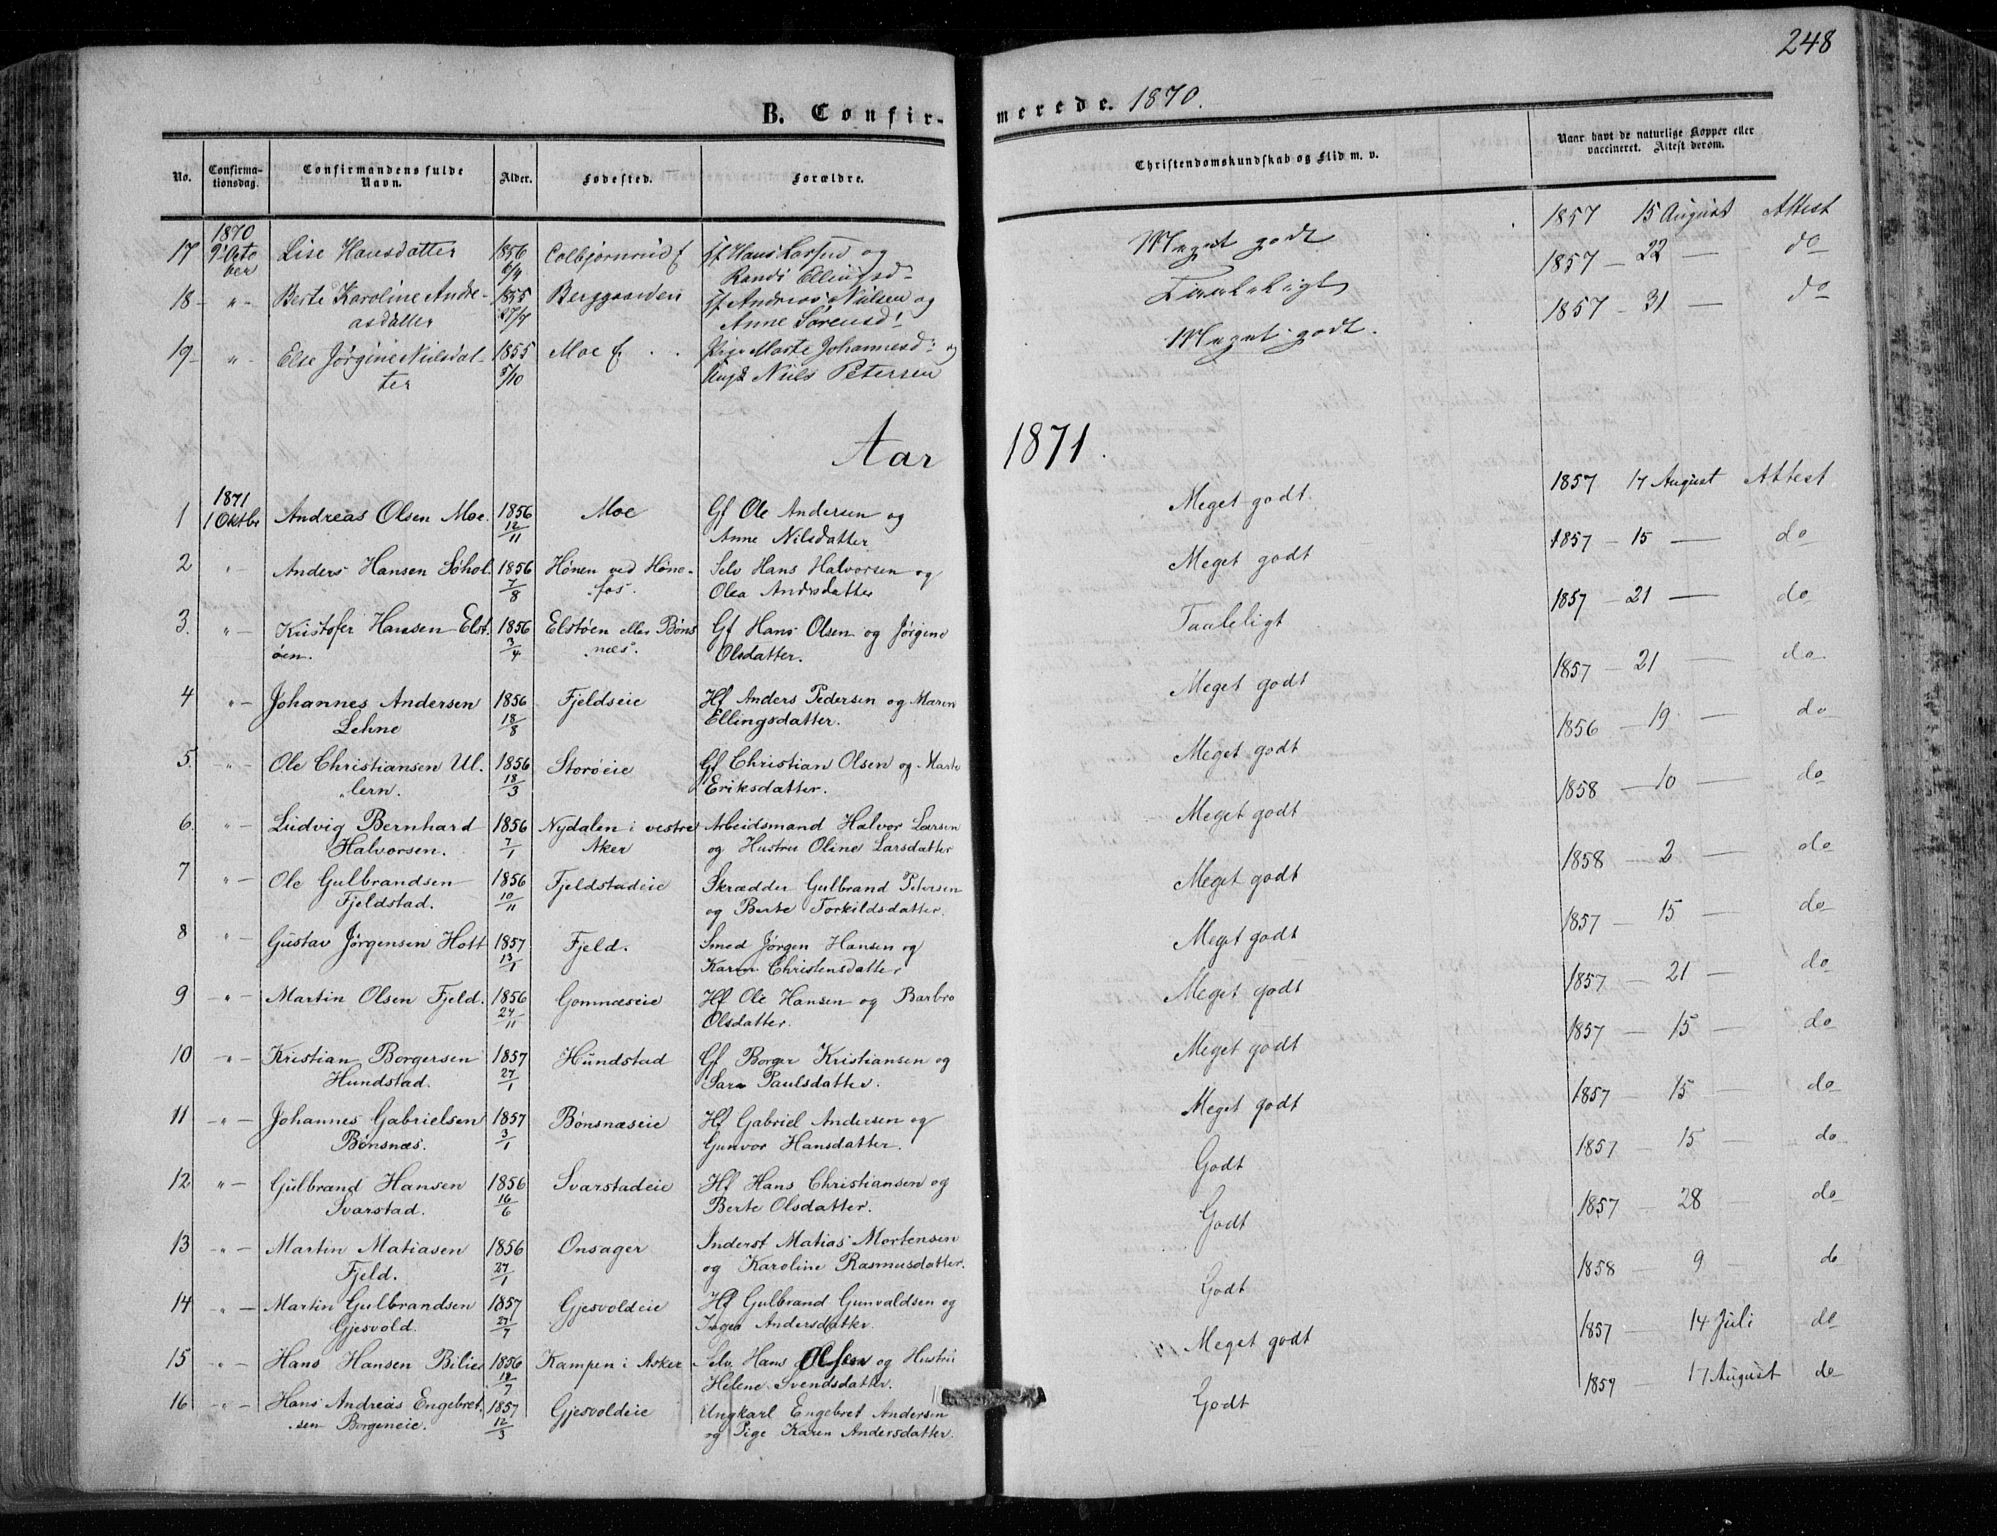 248
B. Confirmerede. 1870.
No. Confirmationsdag. Confirmandens fulde Navn. Alder. Fødested. Forældre. Christendomskundskab og Flid m. v. Naar havt de naturlige Kopper eller vaccineret. Attest derom.
1870
17 9 Octo Lise Hansdatter 1856 Colbjørnrud f Gf Hans Larsen og Meget godt 1857 15 August Attest
ber 6/4 Randi Ellingsd
18 - " - Berte Karoline Andre- 1855 Berggaarden Gf Andreas Nilsen og Taaleligt 1857 - 22 — do
asdatter 27/7 Anne Sørensd
19 - " Else Jørgine Nielsdat- 1855 Moe f. Pige Marte Johannesd og Meget godt. 1857 - 31 — do
ter 5/10 Ungk Niels Petersen
Aar 1871.
1871
1 1 Oktbr Andreas Olsen Moe. 1856 Moe Gf Ole Andersen og Meget godt. 1857 17 August Attest
12/11 Anne Nilsdatter
2 " Anders Hansen Søhol 1856 Hønen ved Høne- Selv Hans Halvorsen og Meget godt 1857 - 15 — do
7/8 fos. Olea Andrsdatter
3. " - Kristofer Hansen Elst 1856 Elstøen eller Bøns Gf Hans Olsen og Jørgine Taaleligt 1857 - 21 — do
øen. 3/4 næs. Olsdatter.
4 " - Johannes Andersen 1856 Fjeldseie Hf Anders Pedersen og Maren Meget godt 1857 - 21 — do
Lehne 18/8 Ellingsdatter.
5. - " - Ole Christiansen Ul- 1856 Storøeie Gf Christian Olsen og Marte Meget godt 1856 - 19 — do
lern. 18/3 Eriksdatter.
6. - " - Ludvig Bernhard 1856 Nydalen i vestre Arbeidsmand Halvor Larsen Meget godt 1858 - 10 — do
Halvorsen. 7/1 Aker og Hustru Oline Larsdatter
7 - " - Ole Gulbrandsen 1856 Fjeldstadeie Skrædder Gulbrand Petersen Meget godt 1858 - 2 — do
Fjeldstad. 10/11 og Berte Torkildsdatter.
8 - " - Gustav Jørgensen Hott 1857 Fjeld. Smed Jørgen Hansen og Meget godt 1857 - 15 — do
13/1 Karen Christensdatter
9 - " - Martin Olsen Fjeld. 1856 Gomnæseie Hf Ole Hansen og Barbro Meget godt 1857 - 21 — do
27/11 Olsdatter.
10 - " - Kristian Borgersen 1857 Hundstad Gf Borger Kristiansen og Meget godt 1857 - 15 — do
Hundstad. 27/1 Sara Paulsdatter.
11 - " - Johannes Gabrielsen 1857 Bønsnæseie Hf Gabriel Andersen og Meget godt 1857 - 15 — do
Bønsnæs. 3/1 Gunvor Hansdatter.
12 " - Gulbrand Hansen 1856 Svarstadeie Hf Hans Christiansen og Godt 1857 - 15 - do
Svarstad. 16/6 Berte Olsdatter.
13 - " - Martin Matiasen 1856 Onsager Inderst Matias Mortensen Godt 1857 - 28 - do
Fjeld. 27/1 og Karoline Rasmusdatter.
14 - " - Martin Gulbrandsen 1857 Gjesvoldeie Hf Gulbrand Gunvaldsen og Godt 1858 - 9 - do
Gjesvold. 27/7 Inger Andersdatter.
15 - " - Hans Hansen Bilie 1856 Kampen i Asker Selv. Hans Olsen og Hustru Meget godt 1857 - 14 Juli do
18/7 Helene Svendsdatter.
16 - " - Hans Andreas Engebret 1857 Gjesvoldeie Ungkarl Engebret Andersen Godt 1859 - 17 August do
sen Borgeneie. 12/3 og Pige Karen Andersdatter.